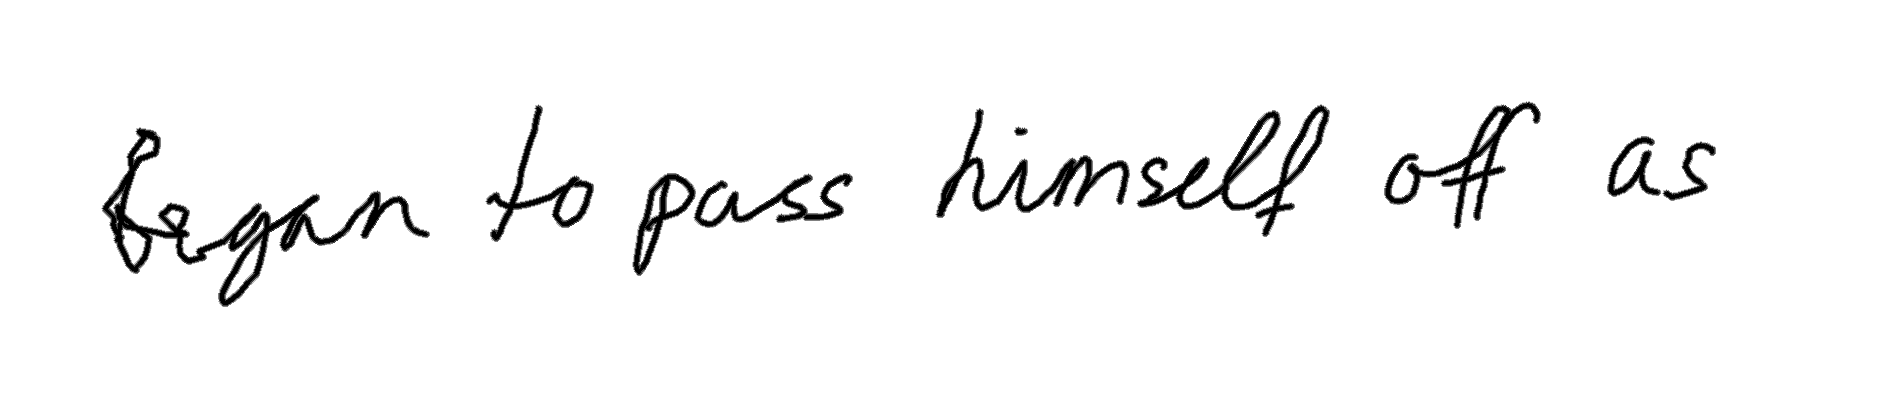 began to pass himself off as